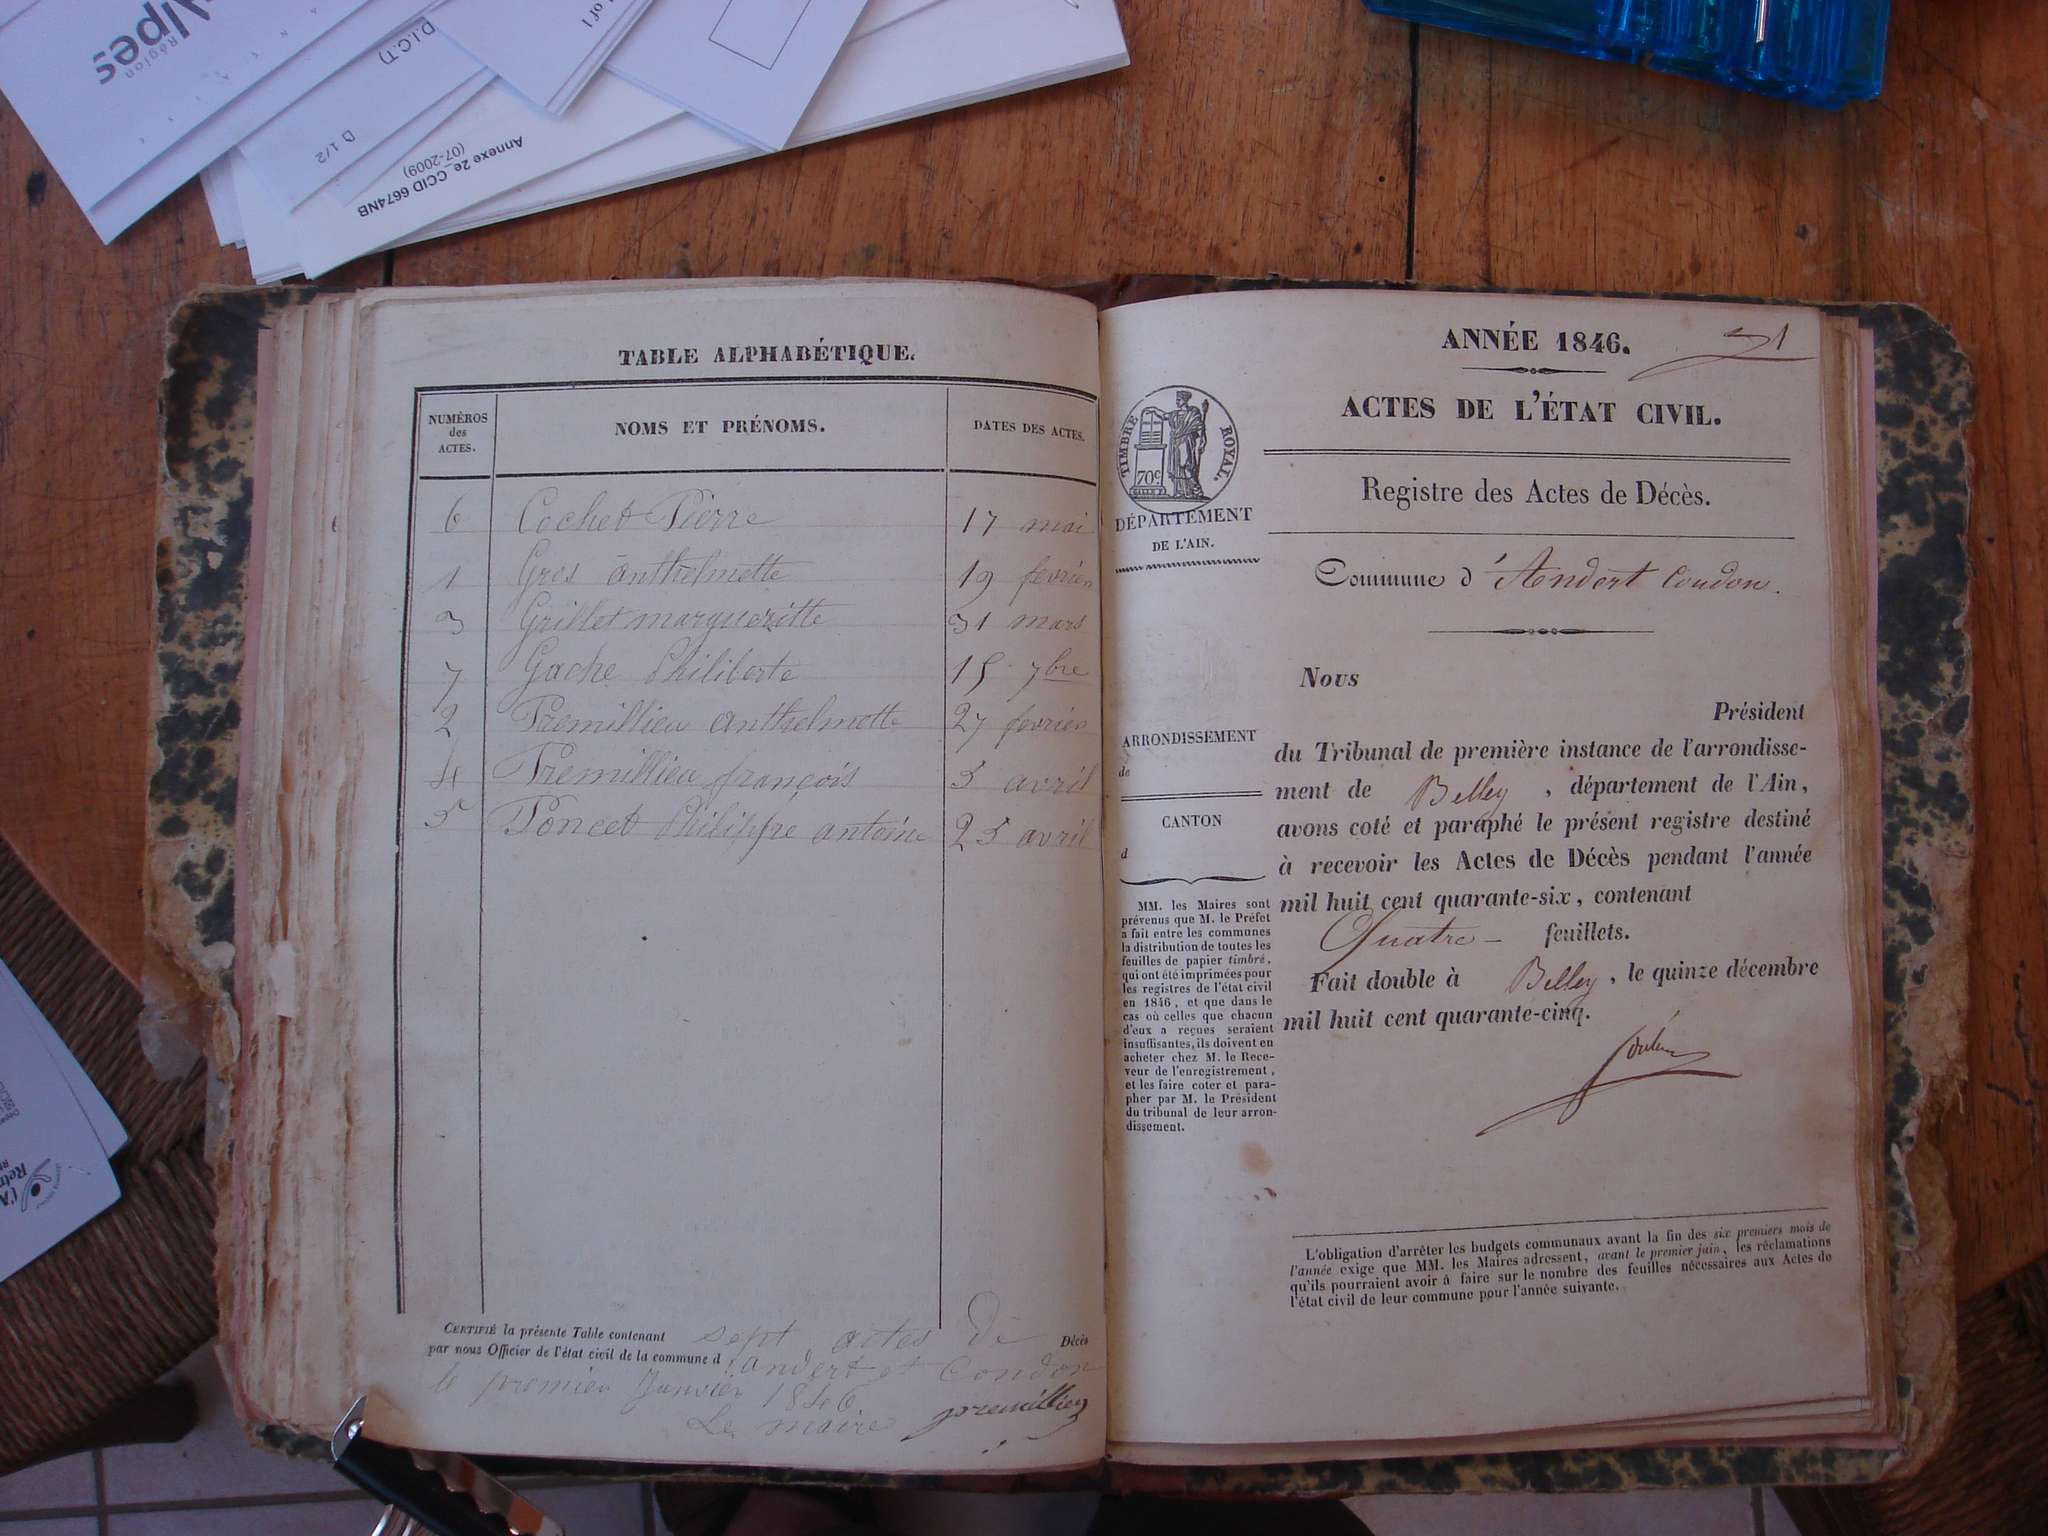 Alpes
Région
(D.I.C.T)
1 of 1
D 1/2
Annexe 2e_CCID 6674NB
(07-2009)
TABLE ALPHABÉTIQUE.
NUMÉROS des ACTES.
NOMS ET PRÉNOMS.
DATES DES ACTES.
6 Cochet Pierre 17 mai
1 Gros anthelmette 19 fevrier
3 Grillet margueritte 31 mars
7 Gache Philiberte 15 7bre
2 Premillieu anthelmette 27 fevrier
4 Premillieu françois 5 avril
5 Poncet Philippe antoine 25 avril
CERTIFIÉ la présente Table contenant sept actes de Décès
par nous Officier de l'état civil de la commune d'andert et Condon
le premier Janvier 1846
Le maire premillieu
ANNÉE 1846.
71
ACTES DE L'ÉTAT CIVIL.
TIMBRE ROYAL.
70c
Registre des Actes de Décès.
DÉPARTEMENT
DE L'AIN.
Commune d'Andert Condon.
Nous
Président
du Tribunal de première instance de l'arrondisse-
ment de Belley, département de l'Ain,
avons coté et paraphé le présent registre destiné
à recevoir les Actes de Décès pendant l'année
mil huit cent quarante-six, contenant
Quatre - feuillets.
Fait double à Belley, le quinze décembre
mil huit cent quarante-cinq.
ARRONDISSEMENT
de
CANTON
d
MM. les Maires sont
prévenus que M. le Préfet
a fait entre les communes
la distribution de toutes les
feuilles de papier timbré,
qui ont été imprimées pour
les registres de l'état civil
en 1846, et que dans le
cas où celles que chacun
d'eux a reçues seraient
insuffisantes, ils doivent en
acheter chez M. le Rece-
veur de l'enregistrement,
et les faire coter et para-
pher par M. le Président
du tribunal de leur arron-
dissement.
L'obligation d'arrêter les budgets communaux avant la fin des six premiers mois de
l'année exige que MM. les Maires adressent, avant le premier juin, les réclamations
qu'ils pourraient avoir à faire sur le nombre des feuilles nécessaires aux Actes de
l'état civil de leur commune pour l'année suivante.